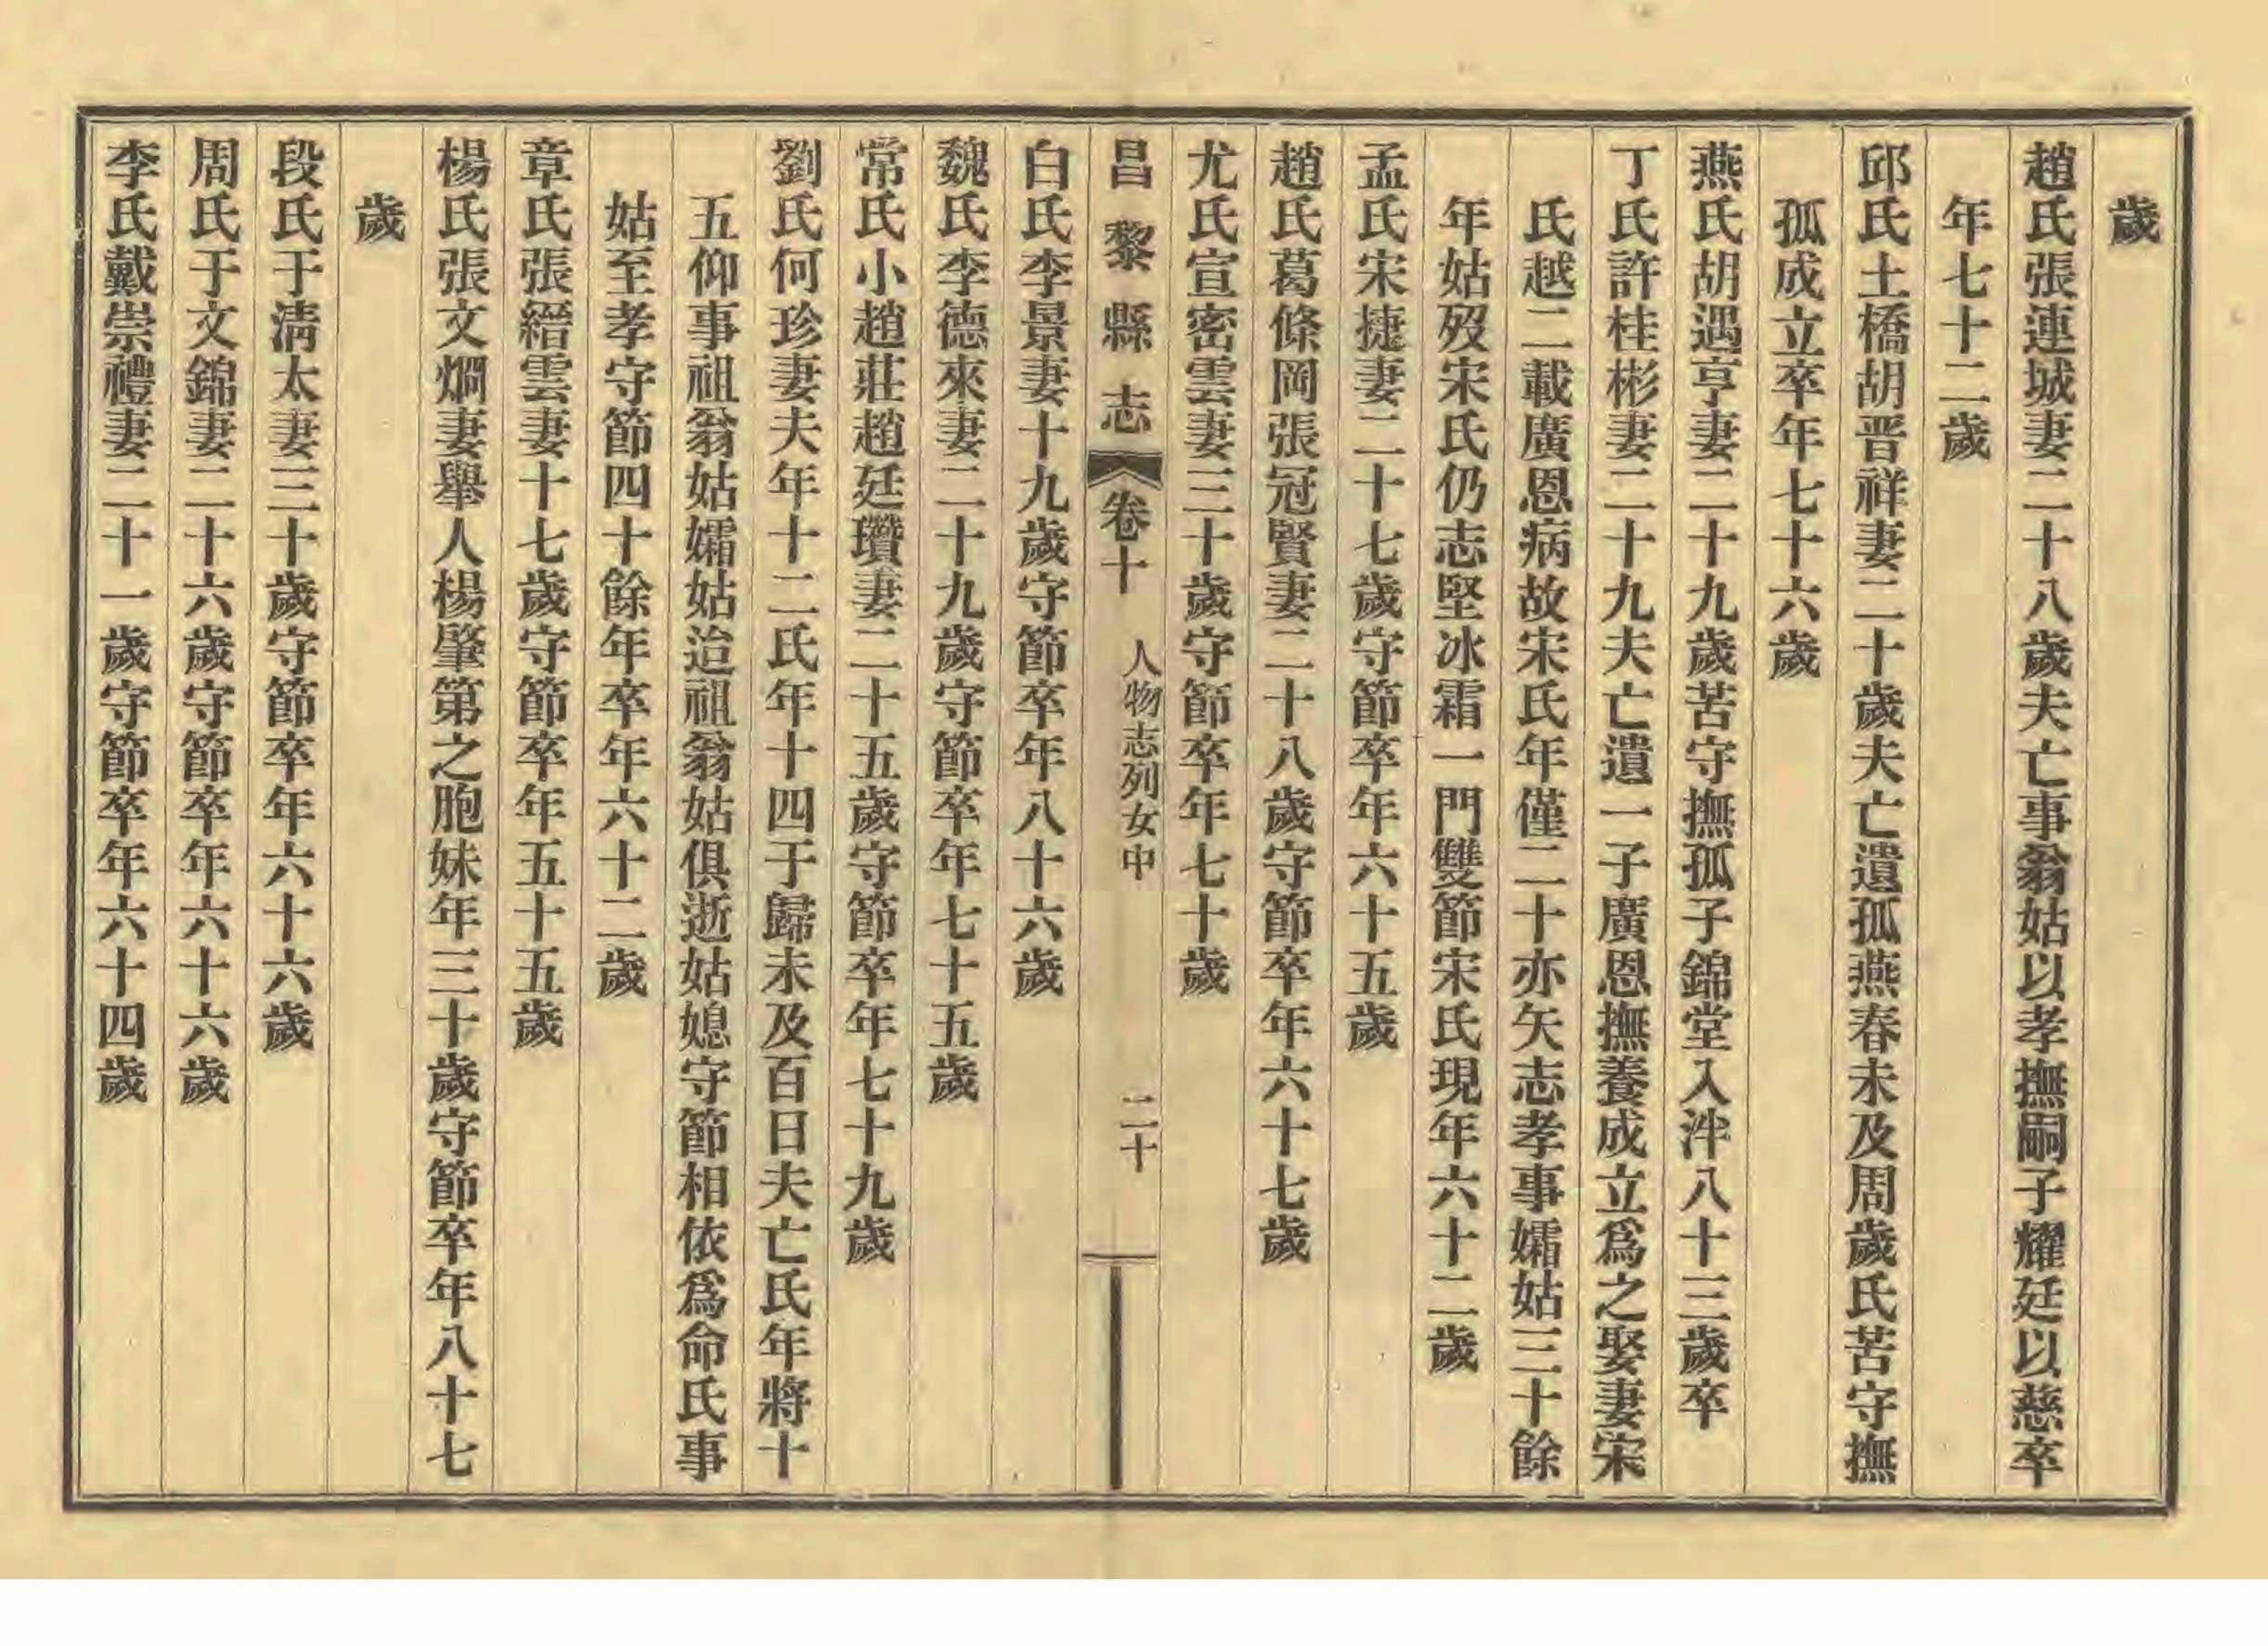 歲
趙氏張連城妻二十八歲夫亡事翁姑以孝撫嗣子耀廷以慈卒
年七十二歲
邱氏土橋胡晋祥妻二十歲夫亡遺孤燕春未及周歲氏苦守撫
孤成立卒年七十六歲
燕氏胡遇亨妻二十九歲苦守撫孤子錦堂入泮八十三歲卒
丁氏許桂彬妻二十九夫亡遺一子廣恩撫養成立爲之娶妻宋
氏越二載廣恩病故宋氏年僅二十亦矢志孝事孀姑三十餘
年姑歿宋氏仍志堅冰霜一門雙節宋氏現年六十二歲
孟氏宋捷妻二十七歲守節卒年六十五歲
趙氏葛條岡張冠賢妻二十八歲守節卒年六十七歲
尤氏宣密雲妻三十歲守節卒年七十歲
昌黎縣志 卷十 人物志列女中 二十
白氏李景妻十九歲守節卒年八十六歲
魏氏李德來妻二十九歲守節卒年七十五歲
常氏小趙莊趙廷瓚妻二十五歲守節卒年七十九歲
劉氏何珍妻夫年十二氏年十四于歸未及百日夫亡氏年將十
五仰事祖翁姑孀姑迨祖翁姑俱逝姑媳守節相依爲命氏事
姑至孝守節四十餘年卒年六十二歲
章氏張縉雲妻十七歲守節卒年五十五歲
楊氏張文烱妻舉人楊肇第之胞妹年三十歲守節卒年八十七
歲
段氏于淸太妻三十歲守節卒年六十六歲
周氏于文錦妻二十六歲守節卒年六十六歲
李氏戴崇禮妻二十一歲守節卒年六十四歲